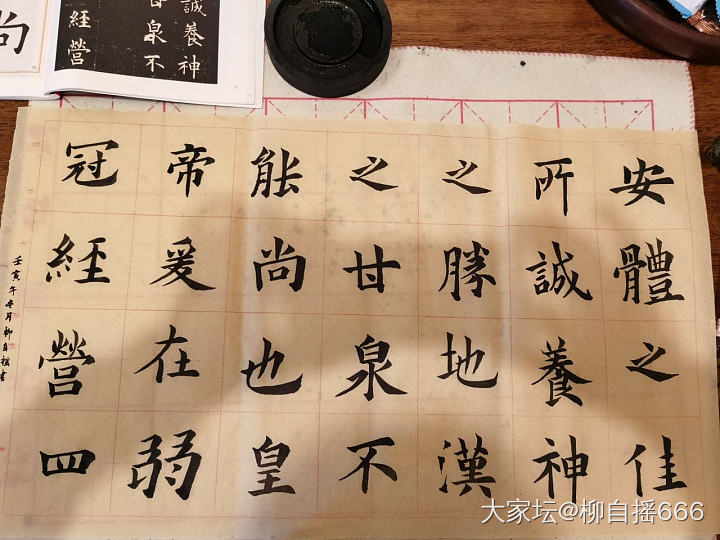 安體之佳
所誠養神
之勝地漢
之甘泉不
能尚也皇
帝爰在弱
冠經營四
壬寅年 月柳自摇書
誠養神
甘泉不
經營
尚
大家坛@柳自摇666